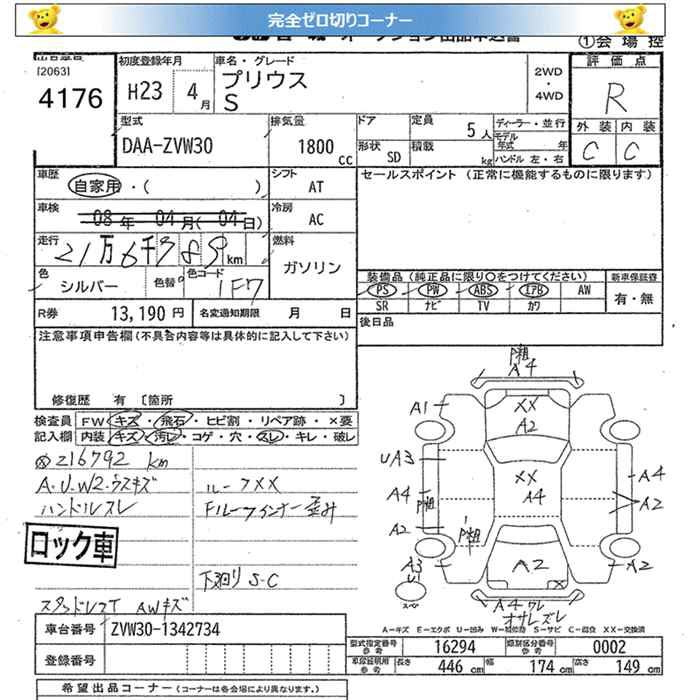 完全ゼロ切りコーナー
①会場控
[2063]
4176
初度登録年月
H23 4月
車名・グレード
プリウス
S
2WD
・
4WD
評価点
R
外装 内装
C C
型式
DAA-ZVW30
排気量
1800
CC
ドア
形状 SD
定員
5人
積載
kg
ディーラー・並行
モデル
年式 年
ハンドル 左・右
車歴
自家用・( )
シフト
AT
セールスポイント (正常に機能するものに限ります)
車検
08年 04月( 04日)
冷房
AC
走行
21万6千789km
燃料
ガソリン
色
シルバー
色替
色コード
1F7
装備品(純正品に限り○をつけてください)
新車保証書
PS PW ABS エアB AW
SR ナビ TV カワ
有・無
R券 13,190円
名変通知期限 月 日
後日品
注意事項申告欄(不具合内容等は具体的に記入して下さい)
修復歴 有 〔箇所 〕
検査員
記入欄
FW キズ・飛石・ヒビ割・リペア跡・×要
内装 キズ・汚レ・コゲ・穴・スレ・キレ・破レ
216792 km
A.U.W2.ウスキズ
ハンドルスレ
ルーフXX
Fルーフインナー歪み
ロック車
下廻り S-C
スタッドレスT AWキズ
P粗
A4
A1
XX
A2
UA3
XX
A4
A4
P粗
A4
A2
A2
P粗
A3
U1
A2
A2
X
スペア
A4ワレ
オサエズレ
A-キズ E-エクボ U-凹み W-補修跡 S-サビ C-腐食 XX-交換済
車台番号 ZVW30-1342734
登録番号
型式指定番号
参考
16294
類別区分番号
参考
0002
車検証明用
参考
長さ 446cm 幅 174cm 高さ 149cm
希望出品コーナー(コーナーは各会場により異なります。)